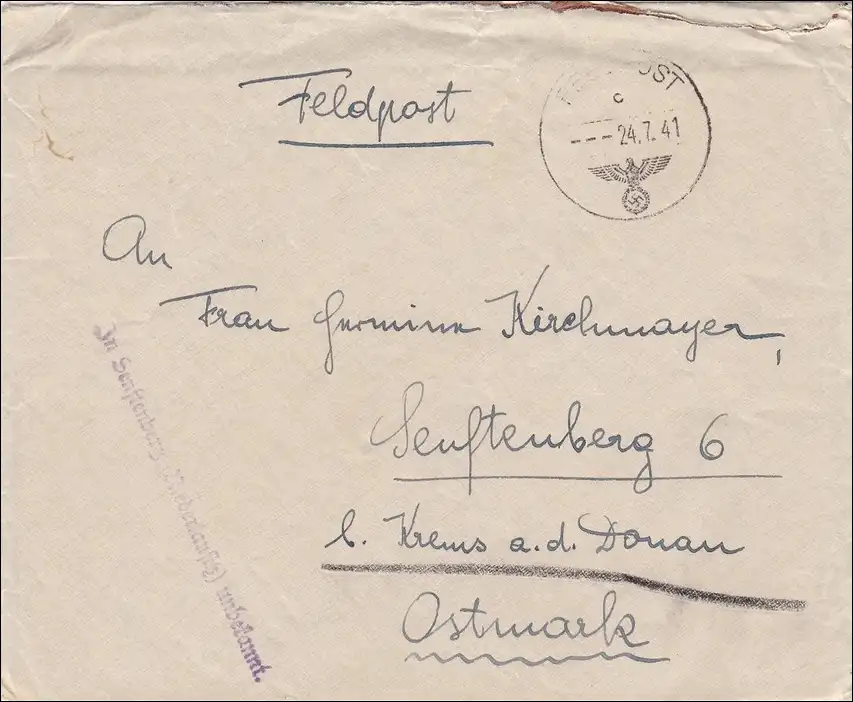 Feldpost
FELDPOST
c
---24.7.41
An
Frau Hermine Kirchmayer,
Senftenberg 6
b. Krems a.d. Donau
Ostmark
In Senftenberg (Niederlausitz) unbekannt.